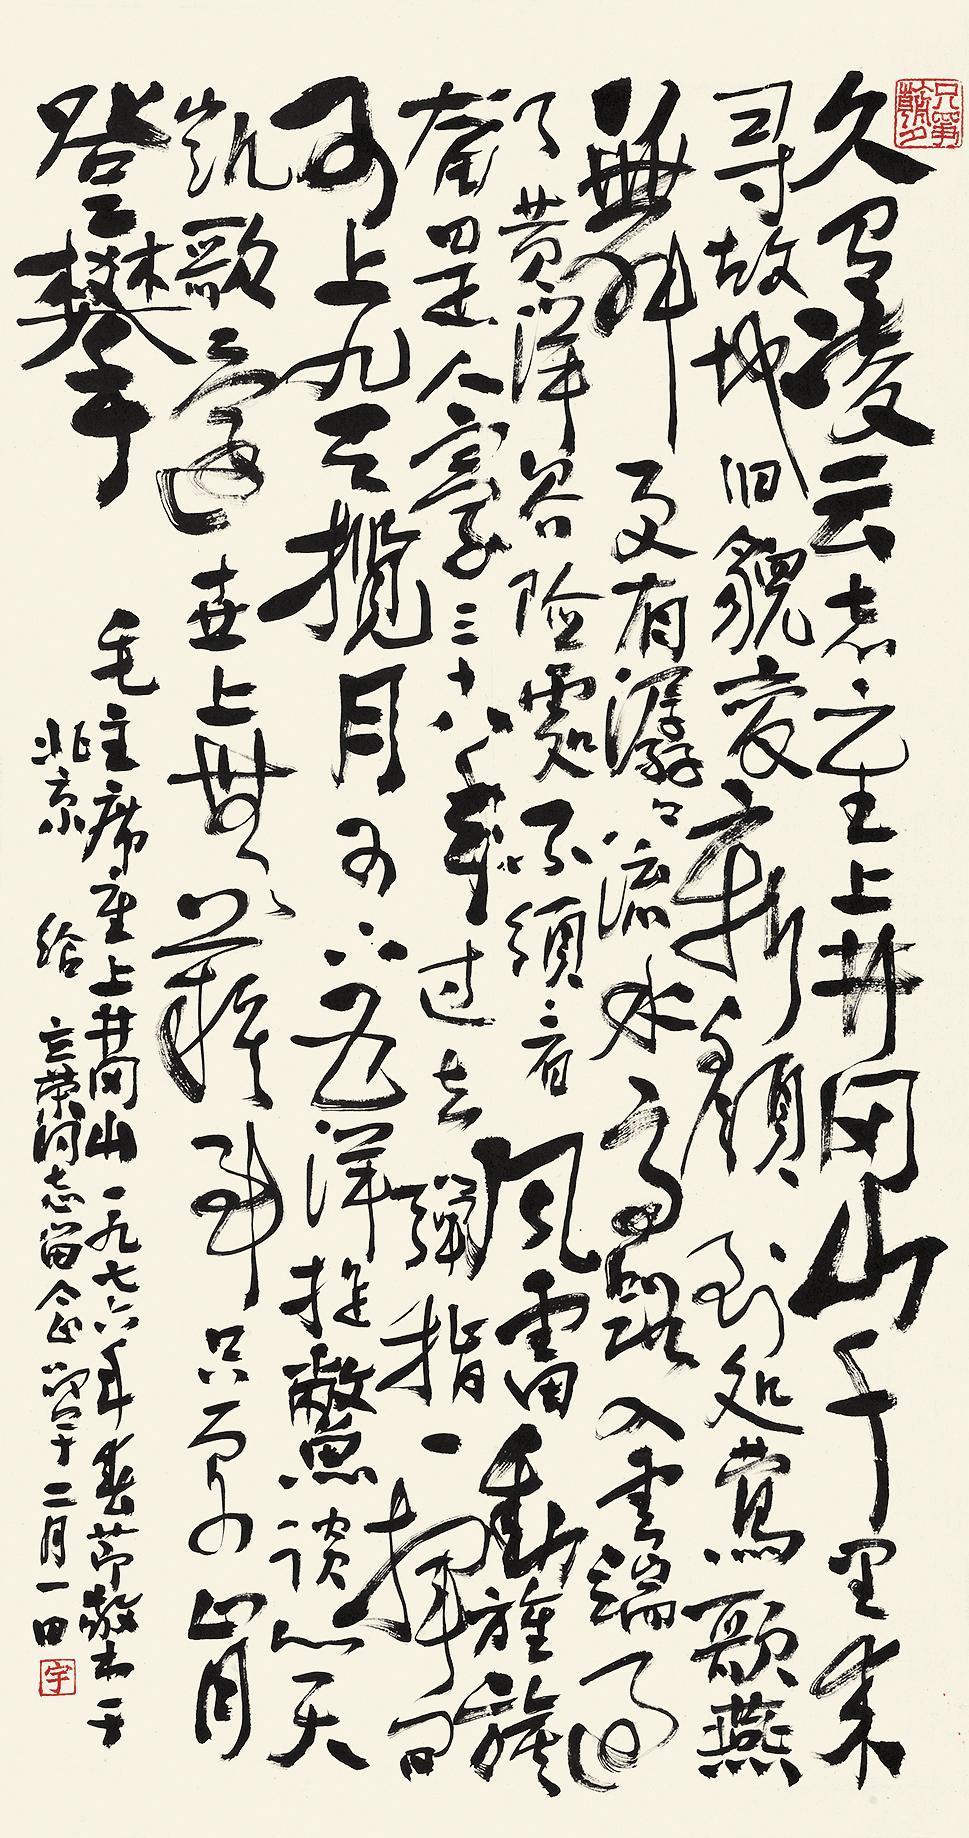 久有凌云志重上井冈山千里来
寻故地旧貌变新顏到处莺歌燕
舞更有潺々流水高路入雲端过
了黄洋界险處不須看风雷動旌旗
奋是人寰三十八年过去弹指一挥间
可上九天揽月可下五洋捉鳖谈笑
凯歌还世上無難事只要肯
登攀
毛主席重上井冈山一九七六年春节敬书于
北京 给荣同志留念二月一日
宇